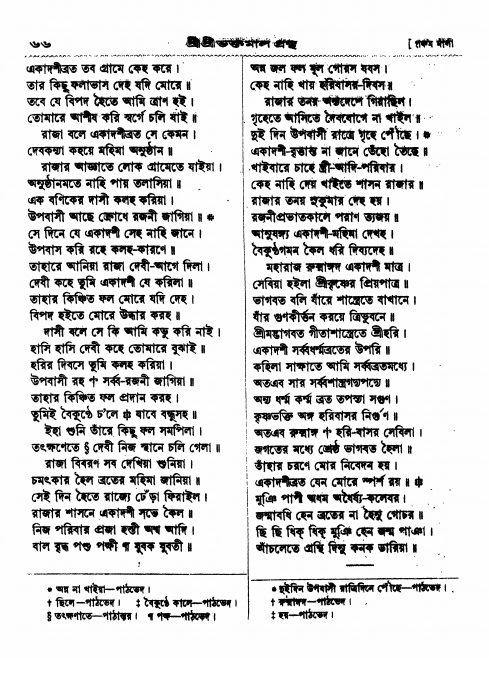 ৬৬
শ্রীশ্রীভক্তমাল গ্রন্থ
একাদশীব্রত তব গ্রামে কেহ করে।
তার কিছু ফলাভাস দেহ যদি মোরে॥
তবে যে বিপদ হৈতে আমি ত্রাণ হই।
তোমারে আশীষ করি স্বর্গে চলি যাই॥
রাজা বলে একাদশীব্রত সে কেমন।
দেবকন্যা কহয়ে মহিমা অনুষ্ঠান॥
রাজার আজ্ঞাতে লোক গ্রামেতে যাইয়া।
অনুষ্ঠানমতে নাহি পায় তলাসিয়া॥
এক বণিকের দাসী কলহ করিয়া।
উপবাসী আছে ক্রোধে রজনী জাগিয়া॥ *
সে দিনে যে একাদশী সেহ নাহি জানে।
উপবাস করি রহে কলহ-কারণে॥
তাহারে আনিয়া রাজা দেবী-আগে দিলা।
দেবী কহে তুমি একাদশী যে করিলা॥
তাহার কিঞ্চিত ফল মোরে যদি দেহ।
বিপদ হইতে মোরে উদ্ধার করহ॥
দাসী বলে সে কি আমি কভু করি নাই।
হাসি হাসি দেবী কহে তোমারে বুঝাই॥
হরির দিবসে তুমি কলহ করিয়া।
উপবাসী রহ † সর্ব্ব-রজনী জাগিয়া॥
তাহার কিঞ্চিত ফল প্রদান করহ।
তুমিই বৈকুণ্ঠে চ'লে ‡ যাবে বন্ধুসহ॥
ইহা শুনি তাঁরে কিছু ফল সমর্পিলা।
তৎক্ষণেতে § দেবী নিজ স্থানে চলি গেলা॥
রাজা বিবরণ সব দেখিয়া শুনিয়া।
চমৎকার হৈল ব্রতের মহিমা জানিয়া॥
সেই দিন হৈতে রাজ্যে ঢেঁড়া ফিরাইল।
রাজার শাসনে একাদশী সভে কৈল॥
নিজ পরিবার প্রজা হস্তী অশ্ব আদি।
বাল বৃদ্ধ পশু পক্ষী ¶ যুবক যুবতী॥
* অন্ন না খাইয়া—পাঠভেদ।
† ছিলে—পাঠভেদ। ‡ বৈকুণ্ঠে কালে—পাঠভেদ।
§ তৎক্ষণাতে—পাঠান্তর। ¶ পক্ষ—পাঠভেদ।
অন্ন জল ফল মূল গোরস যবস।
কেহ নাহি খায় হরিবাসর-দিবস॥
রাজার তনয় অন্যদেশে গিয়াছিল।
গৃহেতে আসিতে দৈবযোগে না খাইল॥
দুই দিন উপবাসী রাত্রে গৃহে পৌঁছে। *
একাদশী-বৃত্তান্ত না জানে তেঁহো তৈছে॥
খাইবারে চাহে স্ত্রী-আদি-পরিবার।
কেহ নাহি দেয় খাইতে শাসন রাজার॥
রাজার তনয় সুকুমার দেহ হয়।
রজনীপ্রভাতকালে পরাণ ত্যজয়॥
আনুষঙ্গ্য একাদশী-মহিমা দেখহ।
বৈকুণ্ঠগমন কৈল ধরি দিব্যদেহ॥
মহারাজ রুক্মাঙ্গদ একাদশী মাত্র।
সেবিয়া হইলা শ্রীকৃষ্ণের প্রিয়পাত্র॥
ভাগবত বলি যাঁরে শাস্ত্রেতে বাখানে।
যাঁর গুণকীর্ত্তন করয়ে ত্রিভুবনে॥
শ্রীমদ্ভাগবত গীতাশাস্ত্রেতে শ্রীহরি।
একাদশী সর্ব্বধর্ম্মব্রতের উপরি॥
কহিলা সাক্ষাতে আমি সর্ব্বব্রতমধ্যে।
অতএব সার সর্ব্বশাস্ত্রগদ্যপদ্যে॥
অন্য ধর্ম্ম কর্ম্ম ব্রত তপস্যা সগুণ।
কৃষ্ণভক্তি অঙ্গ হরিবাসর নির্গুণ॥
অতএব রুক্মাঙ্গ † হরি-বাসর সেবিলা।
জগতের মধ্যে শ্রেষ্ঠ ভাগবত হৈলা॥
তাঁহার চরণে মোর নিবেদন হয়।
একাদশীব্রত যেন মোরে স্পর্শ রয়॥ ‡
মুঞি পাপী অধম অধৈর্য্য-কলেবর।
জন্মাবধি হেন ব্রতের না হৈনু গোচর॥
ছি ছি ধিক্ ধিক্ মুঞি হেন জন্ম পাঞা।
আঁচলেতে গ্রন্থি দিনু কনক ডারিয়া॥
* দুইদিন উপবাসী রাত্রিদিনে পৌঁছে—পাঠভেদ।
† রুক্মাঙ্গদ—পাঠভেদ।
‡ হয়—পাঠভেদ।